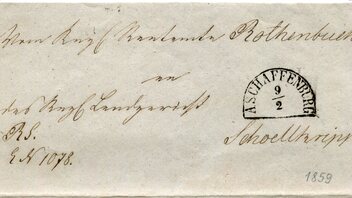 Vom Kngl Rentamte Rothenbuch
an
ASCHAFFENBURG
9
2
das Kngl Landgericht
RS.
Schoellkripp
E.N 1078.
1859